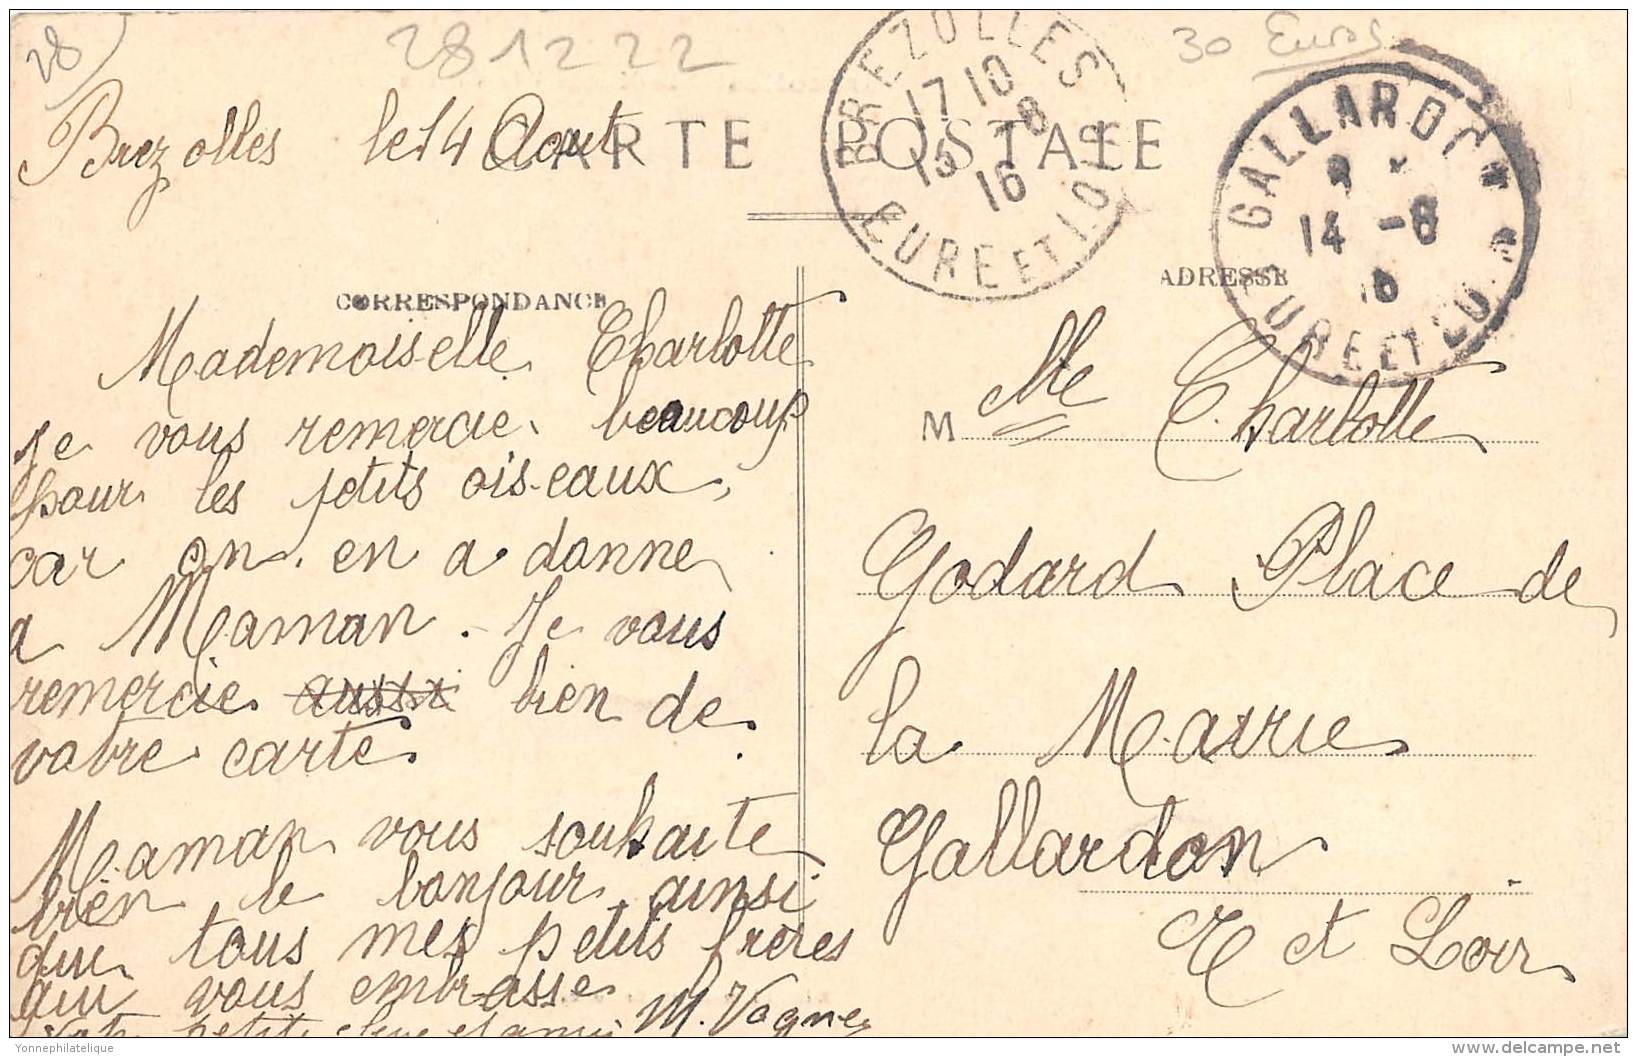 28
281222
30 Euros
Brezolles le 14 Aout
CARTE POSTALE
BREZOLLES
17 10
15 -8
16
EURE ET LOIR
GALLARDON
14 -8
16
EURE ET LOIR
CORRESPONDANCE
ADRESSE
Mademoiselle Charlotte
Je vous remercie beaucoup
pour les petits oiseaux,
car on en a donne
a Maman. Je vous
remercie aussi bien de
votre carte.
Maman vous souhaite
bien le bonjour ainsi
que tous mes petits frères
qui vous embrasse
petite eleve et amie M. Vagner
M Mlle Charlotte
Godard Place de
la Mairie
Gallardon
E et Loir
Yonnephilatelique
delcampe.net